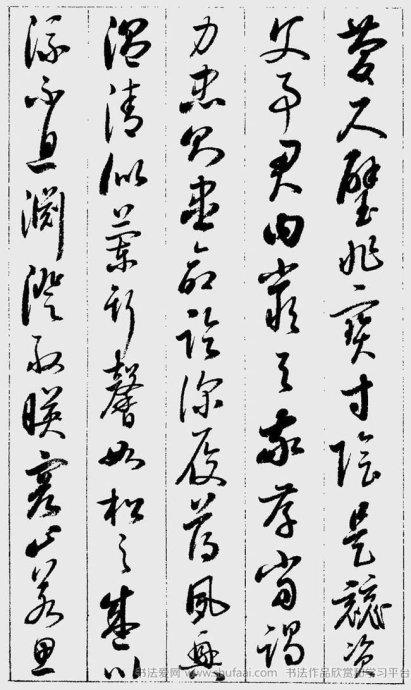 慶尺璧非寶寸陰是競資
父事君曰嚴與敬孝當竭
力忠則盡命臨深履薄夙興
溫清似蘭斯馨如松之盛川
流不息淵澄取映容止若思
书法爱网 www.shufaai.com 书法作品欣赏和学习平台